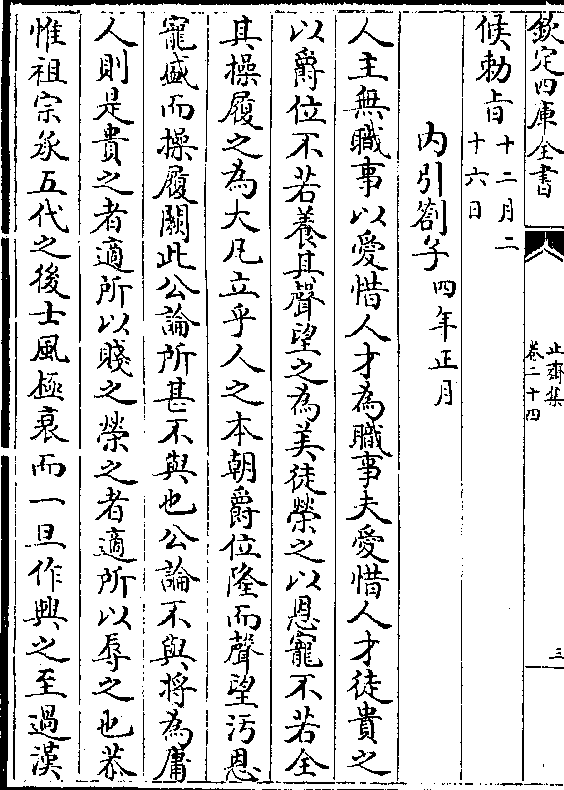 欽定四庫全書
止齋集
卷二十四
三
候勅旨十二月二
十六日
内引劄子四年正月
人主無職事以愛惜人才為職事夫愛惜人才徒貴之
以爵位不若養其聲望之為美徒榮之以恩寵不若全
其操履之為大凡立乎人之本朝爵位隆而聲望汚恩
寵盛而操履闕此公論所甚不與也公論不與將為庸
人則是貴之者適所以賤之榮之者適所以辱之也恭
惟祖宗承五代之後士風極衰而一旦作興之至過漢